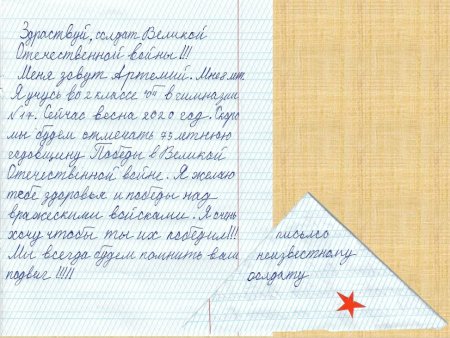 Здраствуй, солдат Великой
Отечественной войны!!!
Меня зовут Артемий. Мне 8 лет
Я учусь во 2 классе "П" в гимназии
N 17. Сейчас весна 2020 год. Скоро
мы будем отмечать 75 летнюю
годовщину Победы в Великой
Отечественной войне. Я желаю
тебе здоровья и победы над
вражескими войсками. Я очень
хочу чтобы ты их победил!!!
Мы всегда будем помнить ваш
подвиг!!!!!
письмо
неизвестному
солдату